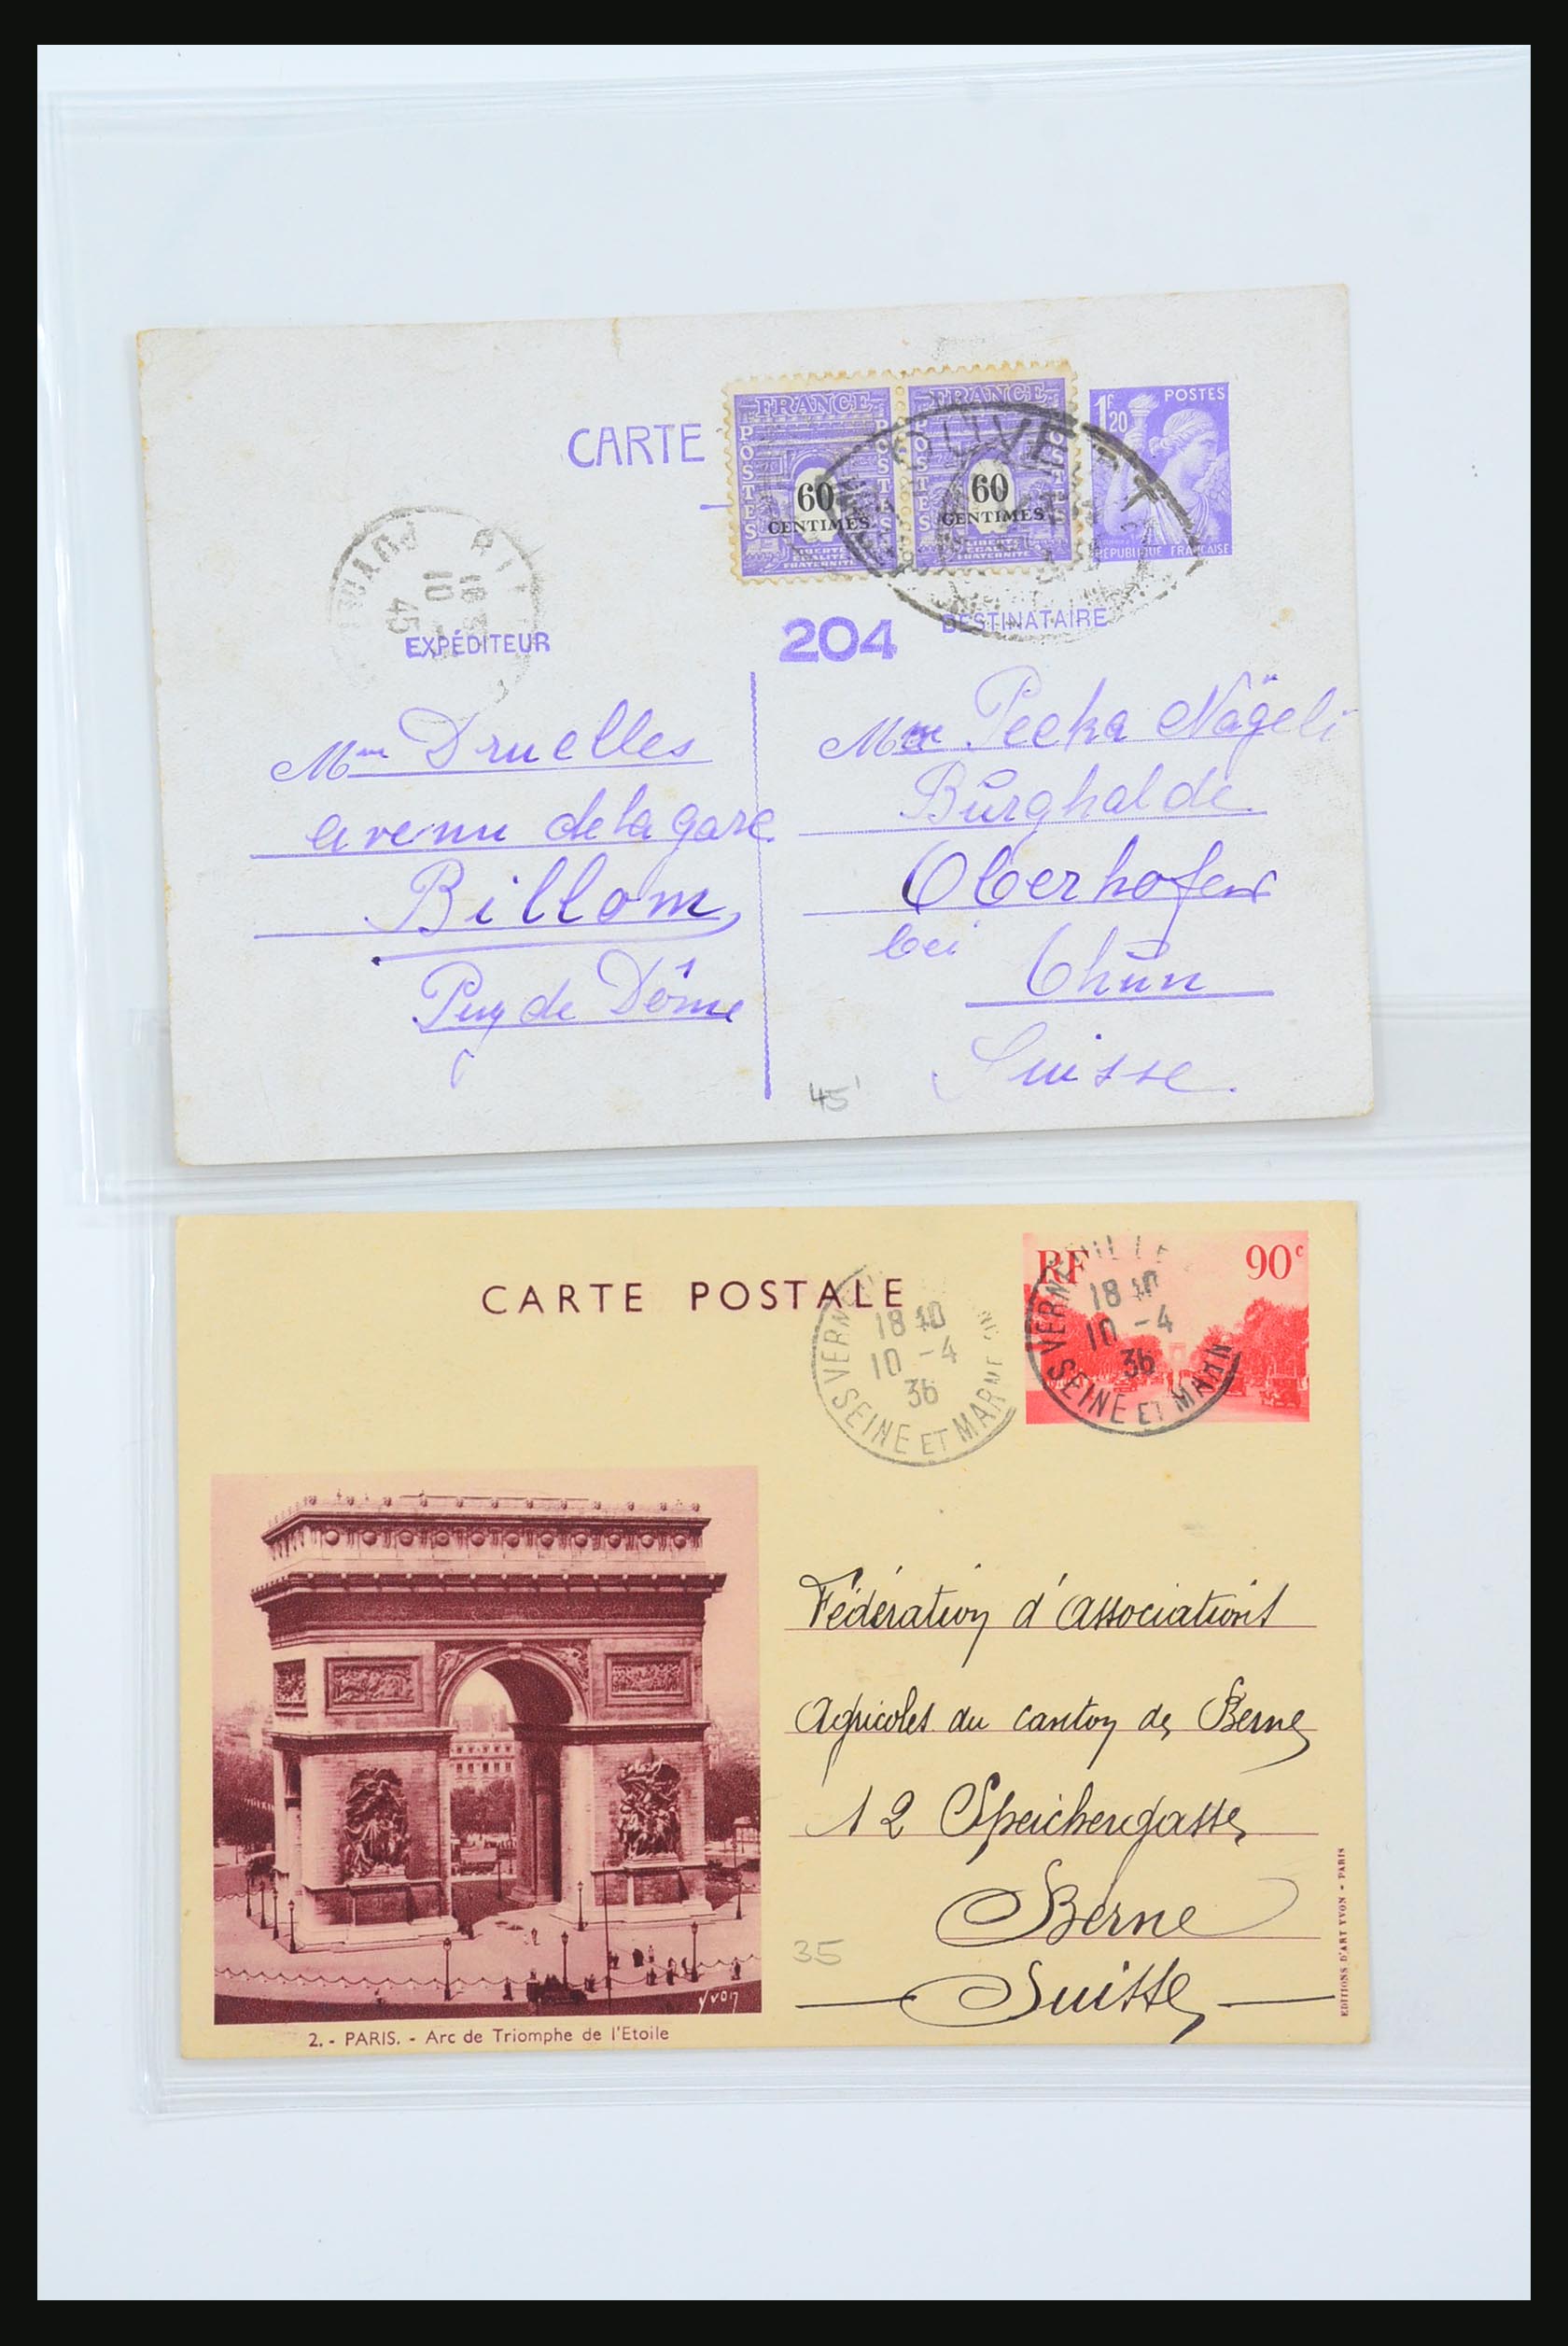 CARTE
FRANCE
POSTES
POSTES
60
CENTIMES
LIBERTÉ
ÉGALITÉ
FRATERNITÉ
FRANCE
POSTES
POSTES
60
CENTIMES
LIBERTÉ
ÉGALITÉ
FRATERNITÉ
1F20
POSTES
RÉPUBLIQUE FRANÇAISE
OUVERT
10
45
EXPÉDITEUR
204
DESTINATAIRE
Mme Druelles
avenue de la gare
Billom
Puy de Dôme
Mme Pecka Nägeli
Burghalde
Oberhofen
bei Thun
Suisse
45
CARTE POSTALE
RF 90c
18 10
10 -4
36
SEINE ET MARNE
18 10
10 -4
36
SEINE ET MARNE
Fédération d'Associations
Agricoles du canton de Berne
12 Speichergasse
Berne
Suisse
35
yvon
2. - PARIS. - Arc de Triomphe de l'Etoile
EDITIONS D'ART YVON - PARIS